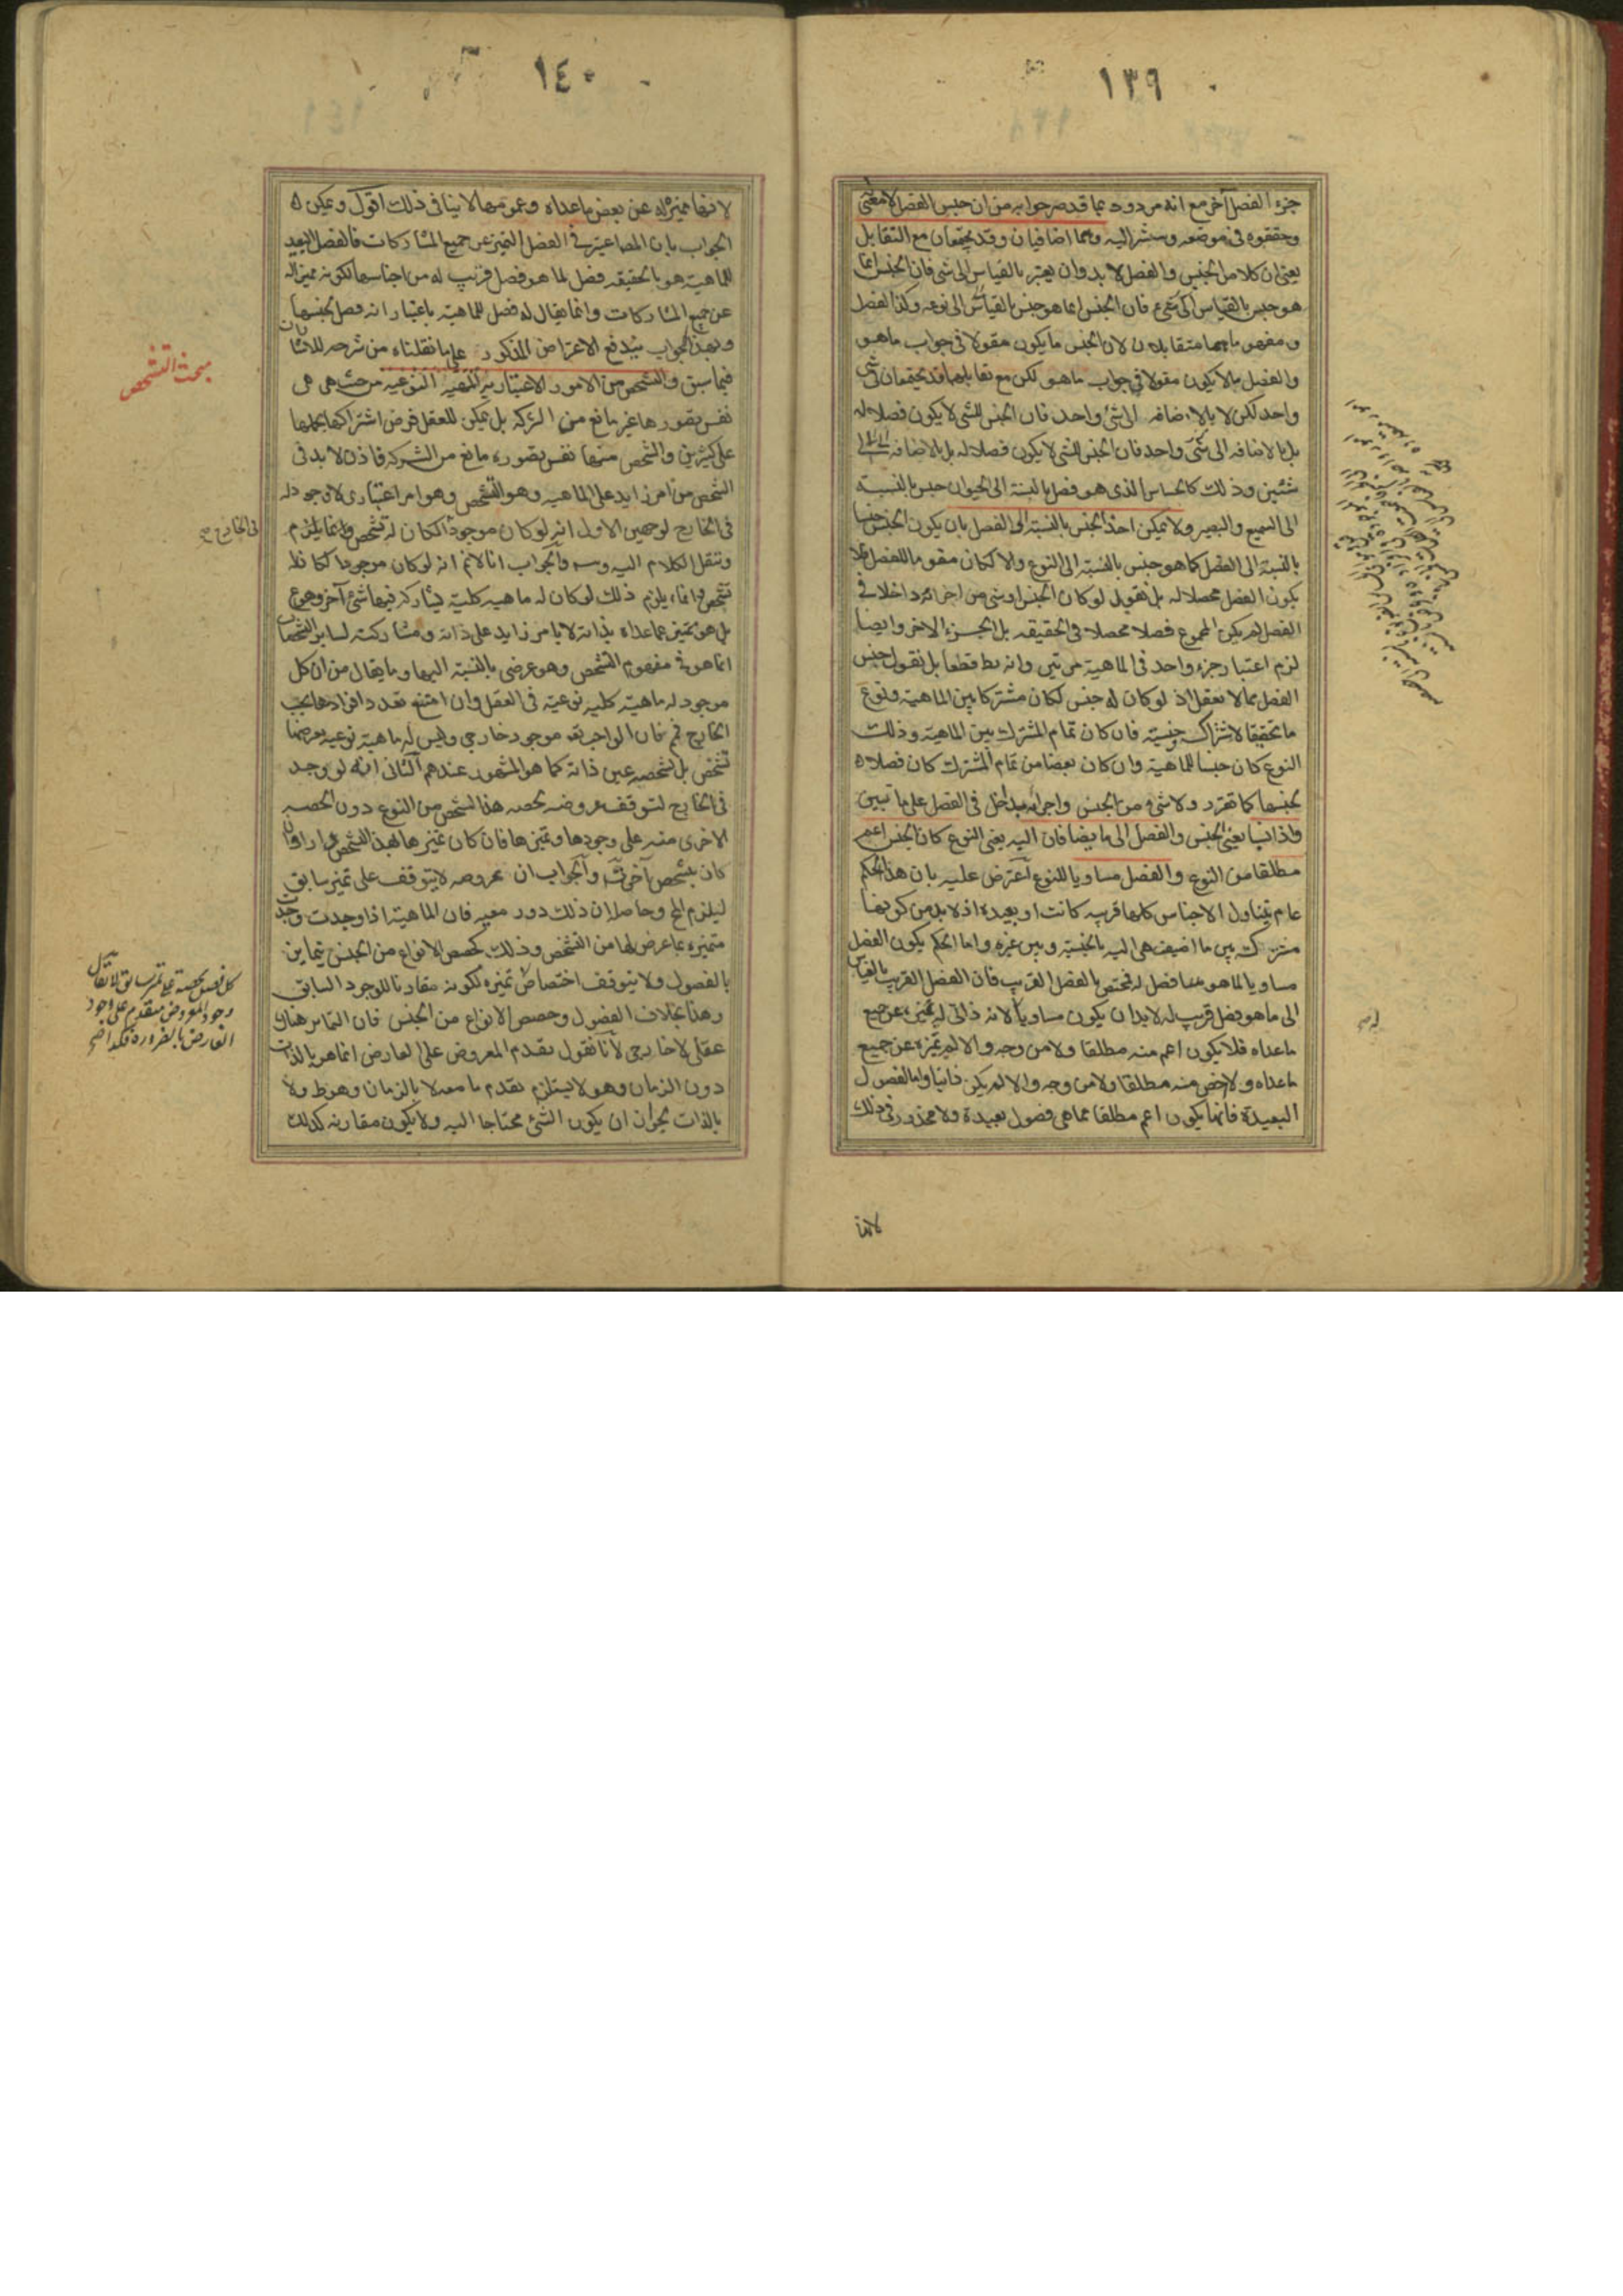 ١٣٩
جزء الفصل آخر مع انه مردود بما قد مر جوابه من ان جنس الفصل لا معنى
وحققوه في موضعه وسنشر اليه وهما اضافيان وقد يجتمعان مع التقابل
يعنى ان كلا من الجنس والفصل لا بد وان يعتبر بالقياس الى شى فان الجنس انما
هو جنس بالقياس الى شىء فان الجنس انما هو جنس بالقياس الى نوعه وكذا الفصل
ومفهوماهما متقابلان لان الجنس ما يكون مقولا في جواب ما هو
والفصل ما لا يكون مقولا في جواب ما هو لكن مع تقابلهما قد يجتمعان في شى
واحد لكن لا بالاضافه الى شئ واحد فان الجنس للشى لا يكون فصلا له
بل بالاضافه الى شئ واحد فان الجنس للشى لا يكون فصلا له بل بالاضافه الى
شئين وذلك كالحساس الذى هو فصل بالنسبة الى الحيوان جنس بالنسبة
الى السميع والبصير ولا يمكن اخذ الجنس بالنسبة الى الفصل بان يكون الجنس جنسا
بالنسبة الى الفصل كما هو جنس بالنسبة الى النوع والا لكان مقوما للفصل فلا
يكون الفصل محصلا له بل نقول لو كان الجنس او شى من اجزائه داخلا في
الفصل لم يكن المجموع فصلا محصلا في الحقيقه بل الجزء الاخر وايضا
لزم اعتبار جزء واحد في الماهية مرتين وانه بط قطعا بل نقول جنس
الفصل مما لا يعقل اذ لو كان له جنس لكان مشتركا بين الماهية ونوع
ما تحقيقا لاشتراك جنسيته فان كان تمام المشترك بين الماهية وذلك
النوع كان جنسا للماهية وان كان بعضا من تمام المشترك كان فصلا
لجنسها كما تقرر ولا شىء من الجنس واجزائه بداخل في الفصل على ما تبين
واذا نسبا يعنى الجنس والفصل الى ما يضافان اليه يعنى النوع كان الجنس اعم
مطلقا من النوع والفصل مساويا للنوع اعترض عليه بان هذا الحكم
عام يتناول الاجناس كلها قريبه كانت او بعيدة اذ لا بد من كونها
مشتركة بين ما اضيف هى اليه بالجنسية وبين غيره واما الحكم بكون الفصل
مساويا لما هو فصل له فمختص بالفصل القريب فان الفصل القريب بالقياس
الى ما هو فصل قريب له لا بد ان يكون مساويا لانه ذاتى له مميز عن جميع
ماعداه فلا يكون اعم منه مطلقا ولا من وجه والا لم يميزه عن جميع
ماعداه ولا اخص منه مطلقا ولا من وجه والا لم يكن ذاتيا واما الفصول
البعيدة فانها يكون اعم مطلقا مما هى فصول بعيدة ولا محذور في ذلك
لانها
١٤٠
لانها مميزة له عن بعض ماعداه وعمومها لا ينافى ذلك اقول ويمكن
الجواب بان المصاعتبر في الفصل التميز عن جميع المشاركات فالفصل البعيد
للماهية هو بالحقيقه فصل لما هو فصل قريب له من اجناسها لكونه مميزا له
عن جميع المشاركات وانما يقال له فصل للماهية باعتبار انه فصل لجنسها
وبهذا الجواب يندفع الاعتراض المذكور على ما نقلناه من شرحه للاشارات
فيما سبق والتشخص من الامور الاعتبارية الماهية النوعيه من حيث هى هى
نفس تصورها غير مانع من الشركة بل يمكن للعقل فرض اشتراكها بحملها
على كثيرين والشخص منها نفس تصوره مانع من الشركة فاذن لا بد في
الشخص من امر زايد على الماهية وهو التشخص وهو امر اعتبارى لا وجود له
في الخارج لوجهين الاول انه لو كان موجودا لكان له تشخص وانما يلزم
وننقل الكلام اليه وتس والجواب انا لانم انه لو كان موجودا لكان له
تشخص وانما يلزم ذلك لو كان له ماهيه كلية يشاركه فيها شئ آخر وهو مم
بل هو متميز عما عداه بذاته لا بامر زايد على ذاته ومشاركته لساير التشخصات
انما هو في مفهوم التشخص وهو عرضى بالنسبة اليها وما يقال من ان كل
موجود له ماهية كليه نوعية في العقل وان امتنع تعدد افرادها بحسب
الخارج فمم فان الواجب تعه موجود خارجى وليس له ماهية نوعيه يعرضها
تشخص بل تشخصه عين ذاته كما هو المشهور عندهم الثانى انه لو وجد
في الخارج لتوقف عروضه لحصه هذا الشخص من النوع دون الحصه
الاخرى منه على وجودها وتميزها فان كان تميزها بهذا التشخص دار وان
كان بتشخص آخر تس والجواب ان عروضه لا يتوقف على تميز سابق
ليلزم المح وحاصله ان ذلك دور معيه فان الماهية اذا وجدت وجدت
متميزه بما عرض لها من التشخص وذلك كحصص الانواع من الجنس يتمايز
بالفصول ولا يتوقف اختصاص تميزه لكونه مقارنا للوجود السابق
وهذا بخلاف الفصول وحصص الانواع من الجنس فان التمايز هناك
عقلى لا خارجى لانا نقول تقدم المعروض على العارض انما هو بالذات
دون الزمان وهو لا يستلزم تقدم ما معه لا بالزمان وهو ط ولا
بالذات لجواز ان يكون الشئ محتاجا اليه ولا يكون مقارنه كذلك
مبحث التشخص
في الخارج صح